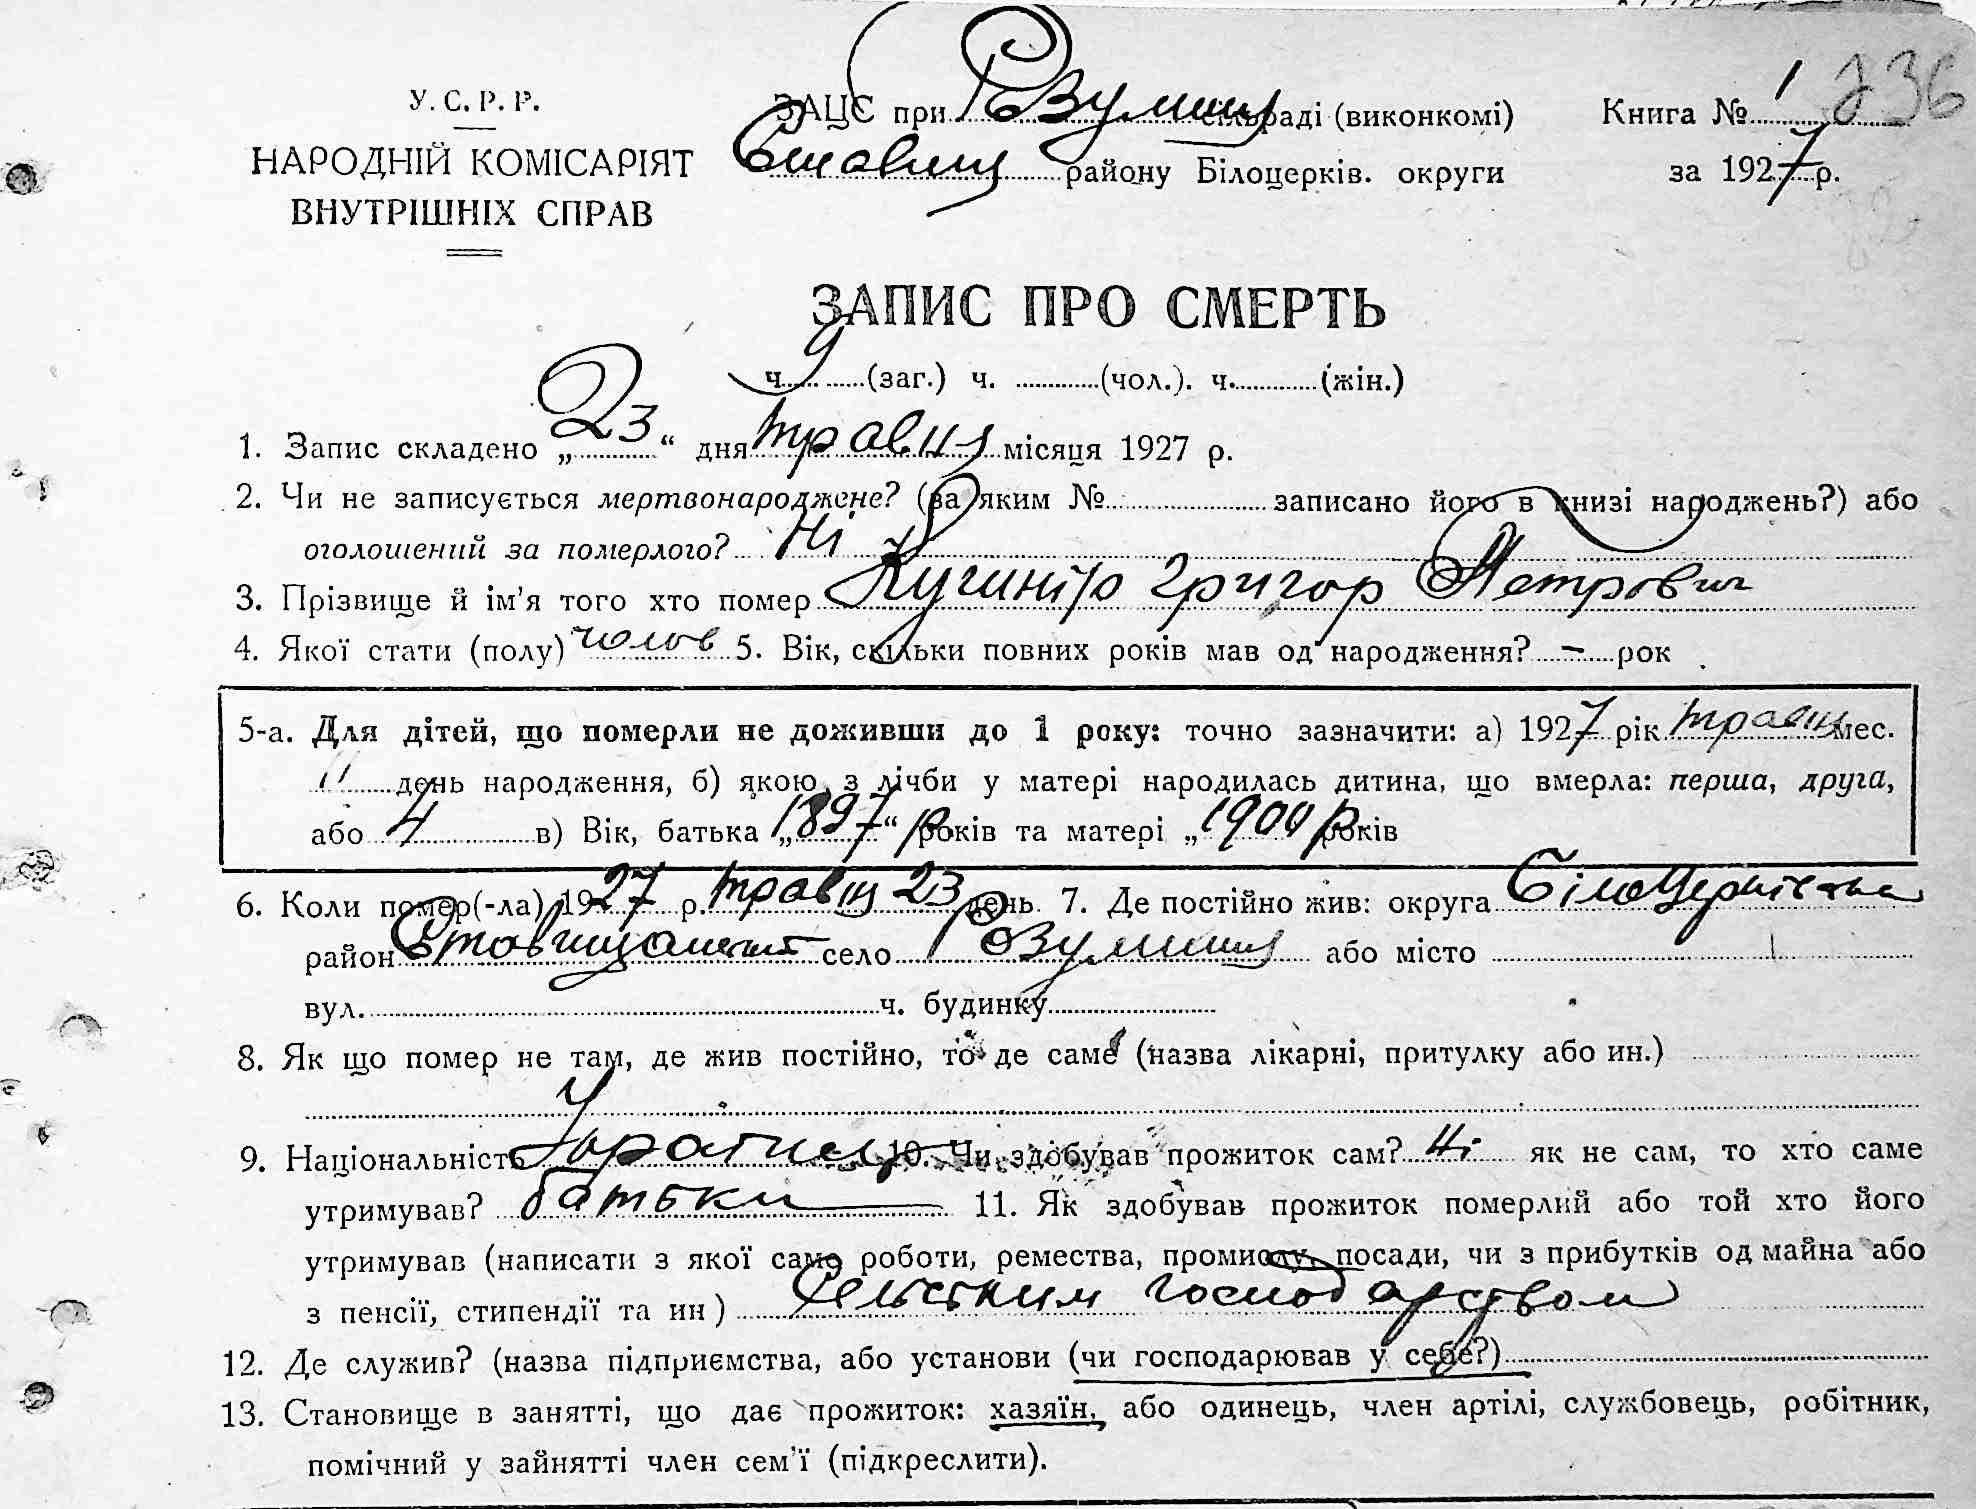 236
У.С.Р.Р. ЗАЦС при Розумниц сільраді (виконкомі) Книга № 1
НАРОДНІЙ КОМІСАРІЯТ Ставищ району Білоцерків. округи за 1927 р.
ВНУТРІШНІХ СПРАВ
ЗАПИС ПРО СМЕРТЬ
ч. 9 (заг.) ч. (чол.). ч. (жін.)
1. Запис складено „23“ дня травня місяця 1927 р.
2. Чи не записується мертвонароджене? (за яким № записано його в книзі народжень?) або
оголошений за померлого? Ні
3. Прізвище й ім'я того хто помер Кушнір Григор Петрович
4. Якої стати (полу) чолов 5. Вік, скільки повних років мав од народження? – рок
5-а. Для дітей, що померли не доживши до 1 року: точно зазначити: а) 1927 рік травня мес.
11 день народження, б) якою з лічби у матері народилась дитина, що вмерла: перша, друга,
або 4 в) Вік, батька „1897“ р років та матері „1900 р років
6. Коли помер(-ла) 1927 р. травня 23 день 7. Де постійно жив: округа Білоцерківська
район Ставищанськ село Розумниця або місто
вул. ч. будинку
8. Як що помер не там, де жив постійно, то де саме (назва лікарні, притулку або ин.)
9. Національність Українец 10. Чи здобував прожиток сам? Ні як не сам, то хто саме
утримував? батьки 11. Як здобував прожиток померлий або той хто його
утримував (написати з якої само роботи, ремества, промислу, посади, чи з прибутків од майна або
з пенсії, стипендії та ин) Сельским господарством
12. Де служив? (назва підприємства, або установи (чи господарював у себе?)
13. Становище в занятті, що дає прожиток: хазяїн, або одинець, член артілі, службовець, робітник,
помічний у зайнятті член сем'ї (підкреслити).